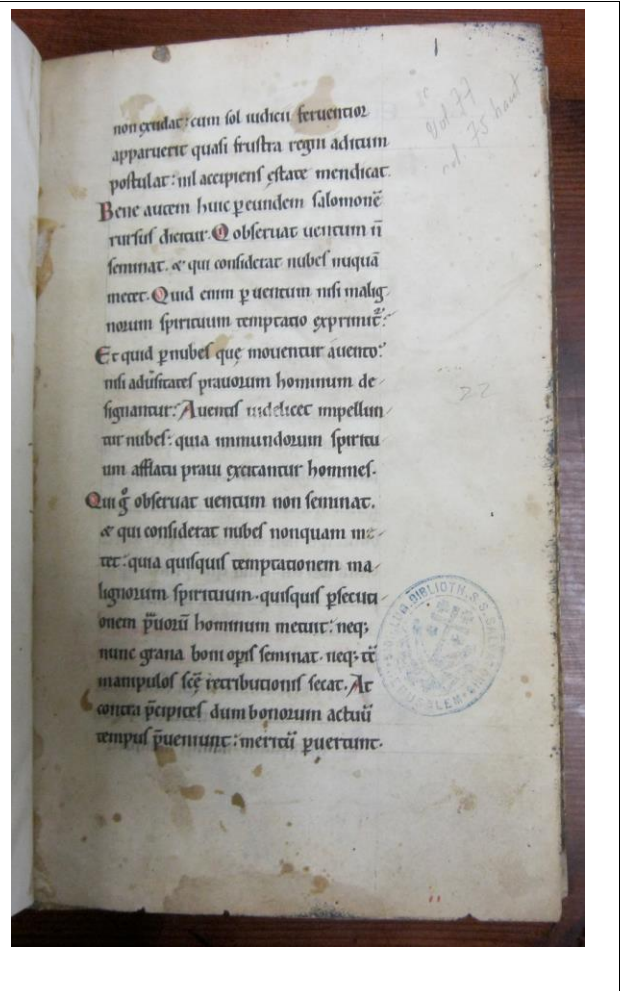 non exudat: cum sol iudicii feruentior
apparuerit quasi frustra regni aditum
postulat: nil accipiens ęstate mendicat.
Bene autem huic ꝑ eundem salomonē
rursus dicitur. Q obseruat uentum n̄
seminat. & qui considerat nubes nuquā
metet. Quid enim ꝑ uentum nisi malig
norum spirituum temptatio exprimit᷑:
Et quid ꝑ nubes quę mouentur auento:
nisi aduſitates prauorum hominum de
signantur: Auentis uidelicet impellun
tur nubes: quia immundorum spiritu
um afflatu praui excitantur homines.
Qui gͦ obseruat uentum non seminat.
& qui considerat nubes nonquam me
tet: quia quisquis temptationem ma
lignorum spirituum. quisquis ꝑsecuti
onem p̄uorū hominum metuit: neq;
nunc grana boni opis seminat. neq; tē
manipulos scę retributionis secat. At
contra p̄cipites dum bonorum actuū
tempus p̄ueniunt: meritū ꝑuertunt.
22
BIBLIOTH. S. S. SALV.